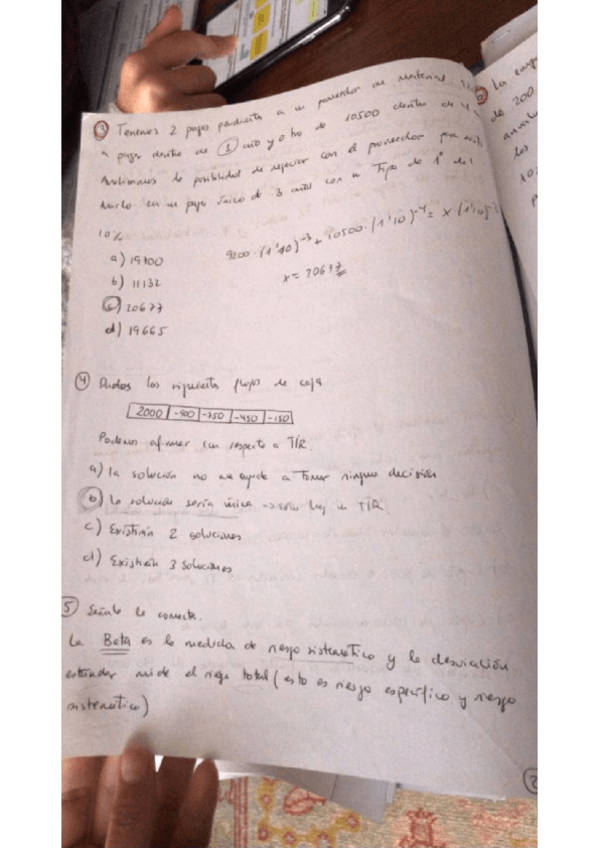 ③ Tenemos 2 pagos pendientes a un proveedor de material
a pagar dentro de ① año y otro de 10500 dentro de 4
Analizamos la posibilidad de negociar con el proveedor para
en un pago único de 3 años con un Tipo de i° del
10%
a) 19700
b) 11132
c) 20677
d) 19665
9200·(1'10)⁻³ + 10500·(1'10)⁻⁴ = x (1'10)⁻³
x = 20677
④ Dados los siguientes flujos de caja
2000 | -900 | -750 | -450 | -150
Podemos afirmar con respecto a TIR.
a) la solución no me ayuda a Tomar ninguna decisión
b) La solución sería única → solo hay un TIR
c) Existirán 2 soluciones
d) Existirán 3 soluciones
⑤ Señale la correcta.
La Beta es la medida de riesgo sistemático y la desviación
estándar mide el riesgo total (esto es riesgo específico y riesgo
sistemático)
de 200
los